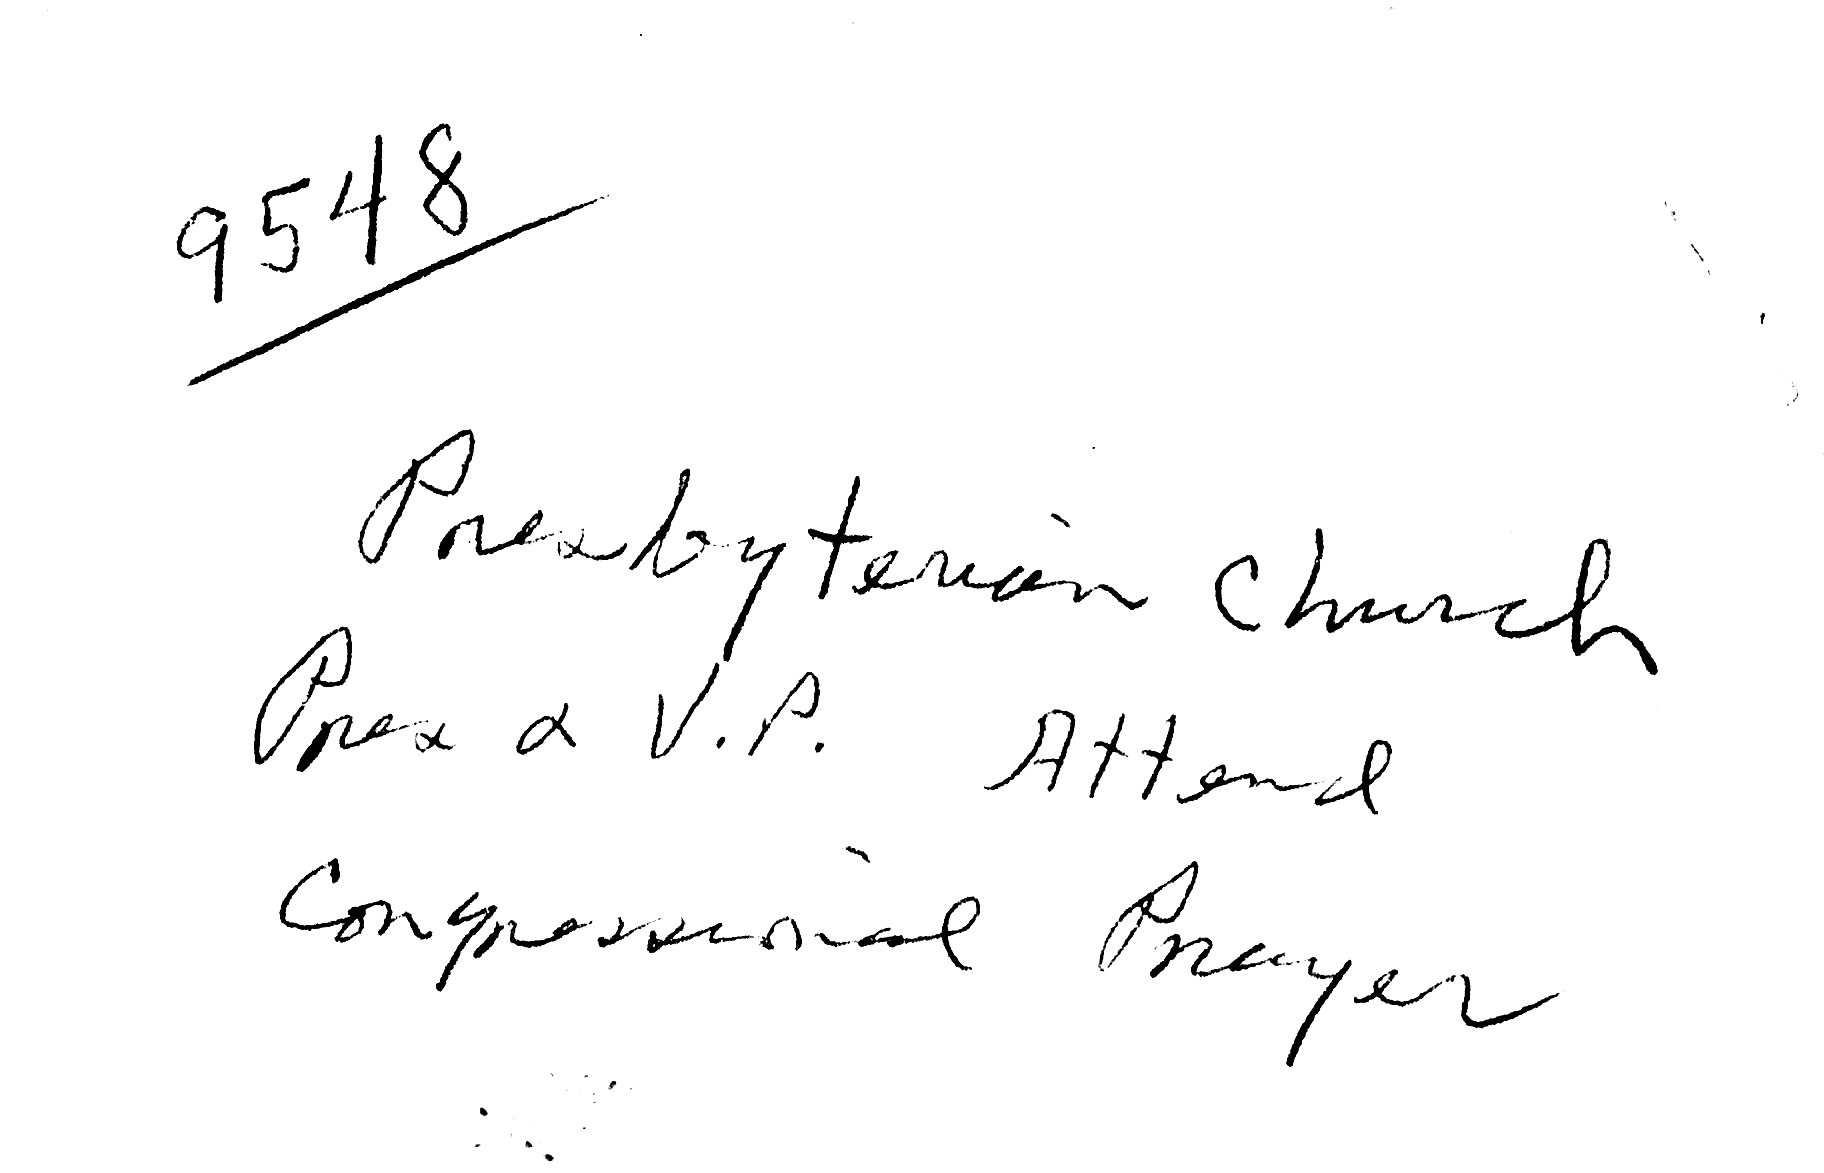 9548
Presbyterian Church
Pres & V.P. Attend
Congressional Prayer